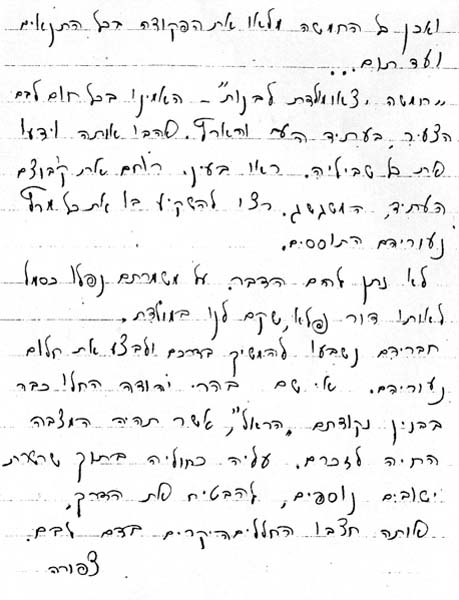 ואכן כל החמשה מלאו את הפקודה בכל התנאים
ועד תום...
"חמשה יצאו מולדת לבנות" – האמינו בכל חום לבם
הצעיר, בעתיד העם והארץ. אהבו אותה וידעו
את כל שביליה. ראו בעיני רוחם את קבוצם
העתיד, המשגשג. רצו להשקיע בו את כל מרץ
נעוריהם התוססים.
לא נתן להם הדבר. על משמרתם נפלו כסמל
לאותו דור נפלא, שקם לנו במולדת.
חבריהם נשבעו להמשיך בדרכם ולבצע את חלום
נעוריהם. אי שם בהרי יהודה החלו כבר
בבנין נקודתם "הראל", אשר תהיה המצבה
החיה לזכרם. עליה כחוליה בתוך שרשרת
ישובים נוספים, להבטיח את הדרך,
אותה חצבו החללים היקרים בדם לבם.
צפורה